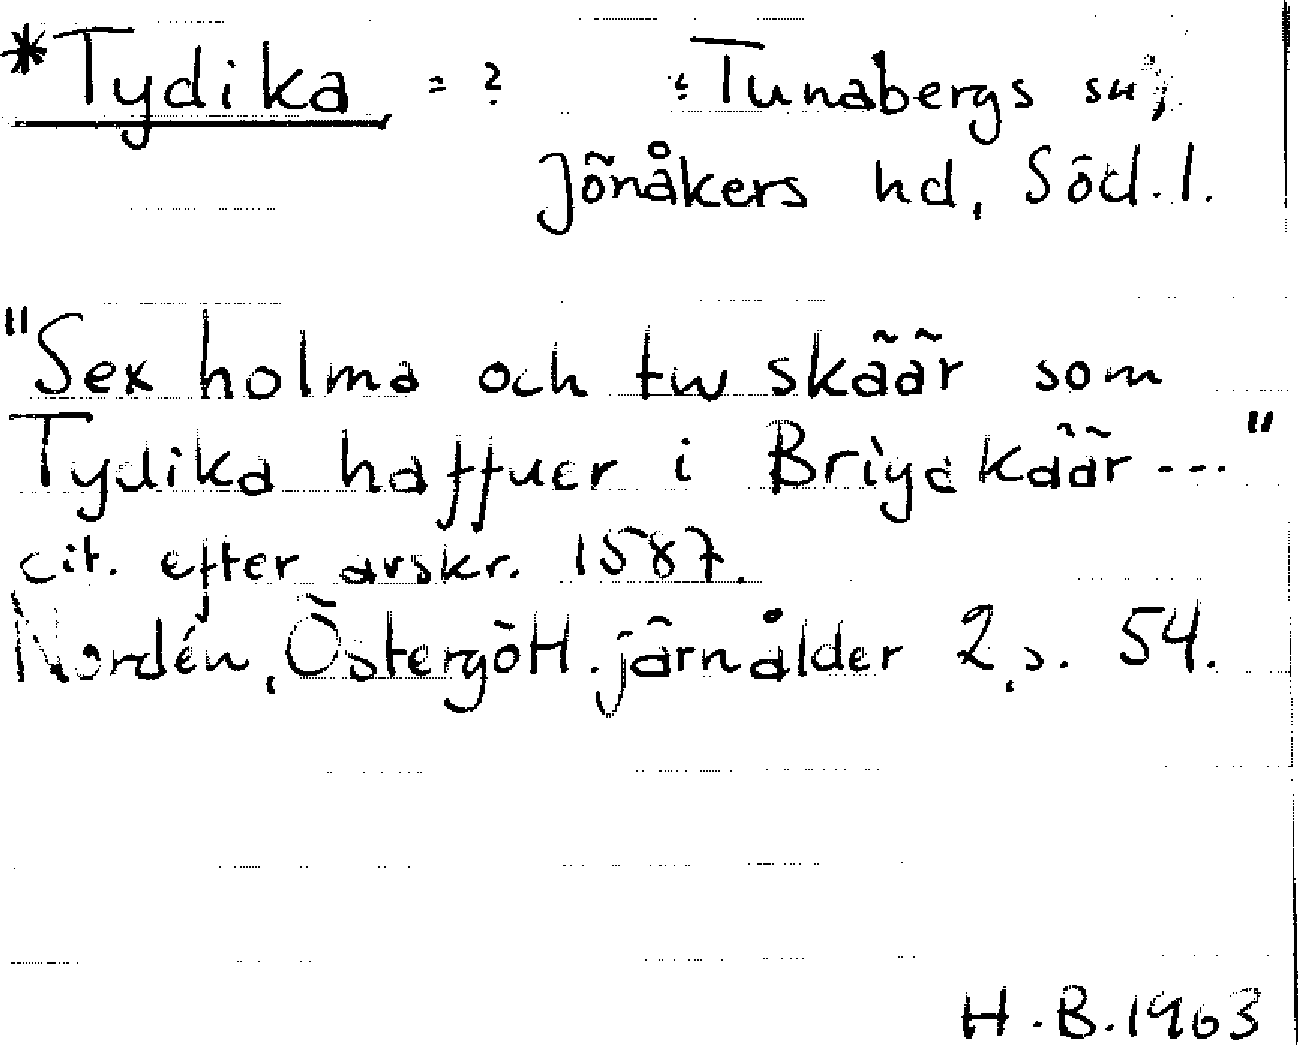 *Tydika = ? ? Tunabergs sn,
Jönåkers hd, Söd.l.
"Sex holma och tw skäär som
Tydika haffuer i Brìydkäär ---"
cit. efter avskr. 1587.
Nordén, Östergötl. järnålder 2, s. 54.
H.B. 1963